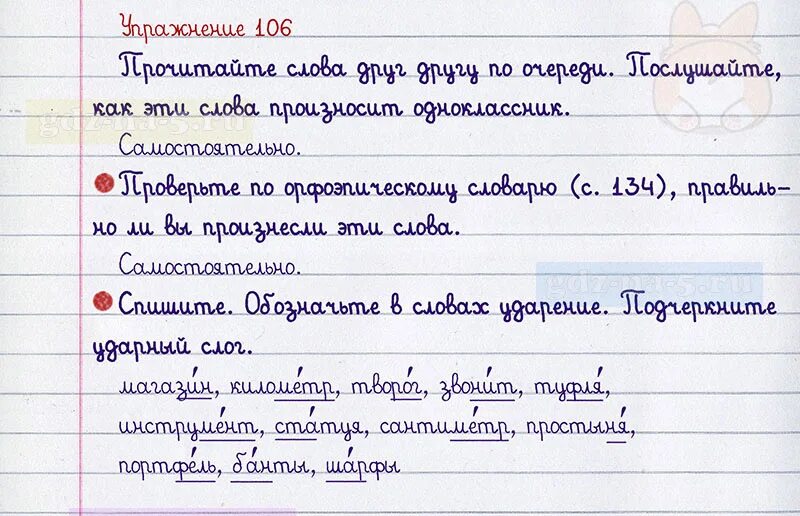 Упражнение 106
Прочитайте слова друг другу по очереди. Послушайте,
как эти слова произносит одноклассник.
gdz-na-5.ru
Самостоятельно.
Проверьте по орфоэпическому словарю (с. 134), правиль-
но ли вы произнесли эти слова.
Самостоятельно.
gdz-na-5.ru
Спишите. Обозначьте в словах ударение. Подчеркните
ударный слог.
магази́н, киломе́тр, творо́г, звони́т, туфля́,
инструме́нт, ста́туя, сантиме́тр, простыня́,
портфе́ль, ба́нты, ша́рфы